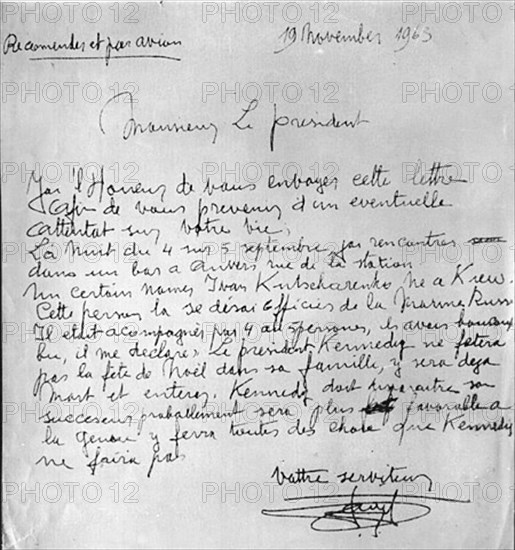 Recomendes et par avion
19 November 1963
Monsieur Le president
J'ai l'Honeur de vous envoyes cette lettre
afin de vous prevenir d'un eventuelle
attentat sur votre vie,
La Nuit du 4 sur 5 septembre, jai rencontres
dans un bar a Anvers rue de la station
Un certain nomes Ivan Kutscharenko ne a Kiew.
Cette person la se désai Officies de la Marine Russ
Il etait acompagnes par 4 au 5 persones, ils avais
bu, il me declares Le president Kennedy ne fetera
pas la fête de Noël dans sa famille, y sera deja
mort et enteres. Kennedy doit disparaitre son
succeseur probablement sera plus favorable a
la y ferra toutes des chose que Kennedy
ne faira pas
vottre serviteur
PHOTO 12